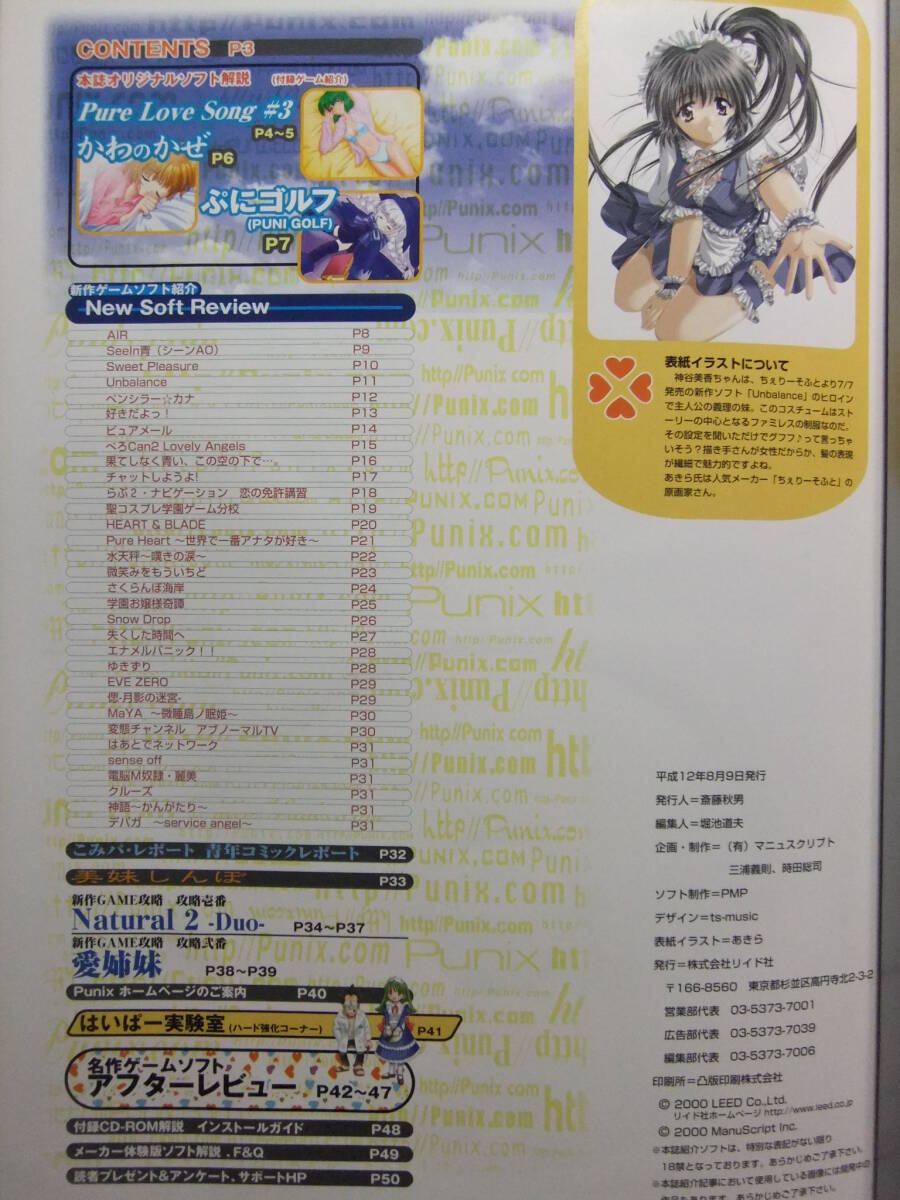 CONTENTS P3
本誌オリジナルソフト解説 (付録ゲーム紹介)
Pure Love Song #3
P4~5
かわのかぜ
P6
ぷにゴルフ
(PUNI GOLF)
P7
新作ゲームソフト紹介
New Soft Review
AIR P8
SeeIn青(シーンAO) P9
Sweet Pleasure P10
Unbalance P11
ペンシラー☆カナ P12
好きだよっ! P13
ピュアメール P14
ぺろCan2 Lovely Angels P15
果てしなく青い、この空の下で…。 P16
チャットしようよ! P17
らぶ2・ナビゲーション 恋の免許講習 P18
聖コスプレ学園ゲーム分校 P19
HEART & BLADE P20
Pure Heart ~世界で一番アナタが好き~ P21
水天秤~嘆きの涙~ P22
微笑みをもういちど P23
さくらんぼ海岸 P24
学園お嬢様奇譚 P25
Snow Drop P26
失くした時間へ P27
エナメルパニック!! P28
ゆきずり P28
EVE ZERO P29
偲-月影の迷宮- P29
MaYA ~微睡島ノ眠姫~ P30
変態チャンネル アブノーマルTV P30
はあとでネットワーク P31
sense off P31
電脳M奴隷・麗美 P31
クルーズ P31
神語~かんがたり~ P31
デパガ ~service angel~ P31
こみパ・レポート 青年コミックレポート P32
美妹しんぼ P33
新作GAME攻略 攻略壱番
Natural 2 -Duo- P34~P37
新作GAME攻略 攻略弐番
愛姉妹 P38~P39
Punix ホームページのご案内 P40
はいぱー実験室(ハード強化コーナー) P41
名作ゲームソフト
アフターレビュー P42~47
付録CD-ROM解説 インストールガイド P48
メーカー体験版ソフト解説.F&Q P49
読者プレゼント&アンケート.サポートHP P50
表紙イラストについて
神谷美香ちゃんは、ちぇりーそふとより7/7
発売の新作ソフト「Unbalance」のヒロイン
で主人公の義理の妹。このコスチュームはスト
ーリーの中心となるファミレスの制服なのだ。
その設定を聞いただけでグフフ♪って言っちゃ
いそう?描き手さんが女性だからか、髪の表現
が繊細で魅力的ですよね。
あきら氏は人気メーカー「ちぇりーそふと」の
原画家さん。
平成12年8月9日発行
発行人=斎藤秋男
編集人=堀池道夫
企画・制作=(有)マニュスクリプト
三浦義則、時田総司
ソフト制作=PMP
デザイン=ts-music
表紙イラスト=あきら
発行=株式会社リイド社
〒166-8560 東京都杉並区高円寺北2-3-2
営業部代表 03-5373-7001
広告部代表 03-5373-7039
編集部代表 03-5373-7006
印刷所=凸版印刷株式会社
© 2000 LEED Co.,Ltd.
リイド社ホームページ http://www.leed.co.jp
© 2000 ManuScript Inc.
※本誌紹介ソフトは、特別な表記がない限り
18禁となっております。あらかじめご了承下さい。
※本誌紹介記事において使用している画像には開発中の